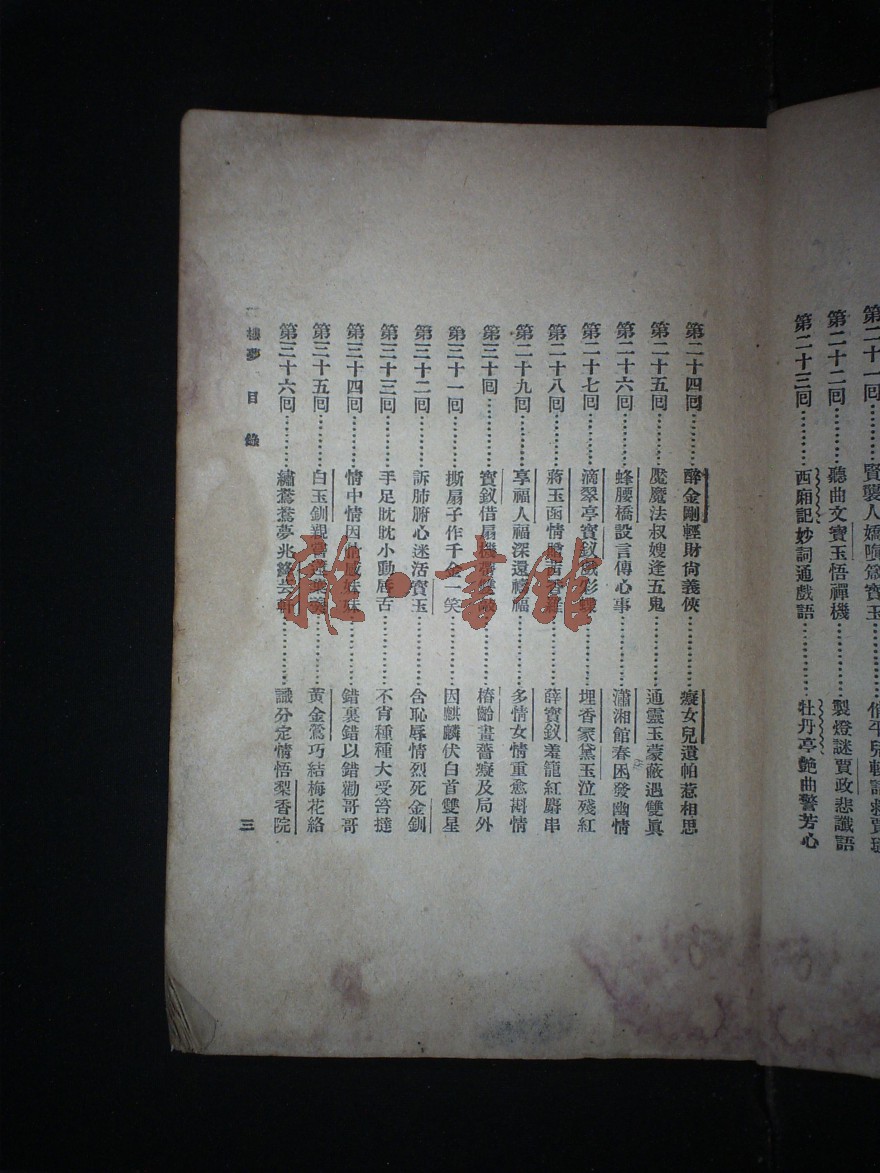 第二十一回………賢襲人嬌嗔箴寶玉
第二十二回………聽曲文寶玉悟禪機………製燈謎賈政悲讖語
第二十三回………西廂記妙詞通戲語………牡丹亭艶曲警芳心
第二十四回………醉金剛輕財尙義俠………癡女兒遺帕惹相思
第二十五回………魘魔法叔嫂逢五鬼………通靈玉蒙蔽遇雙眞
第二十六回………蜂腰橋設言傳心事………瀟湘館春困發幽情
第二十七回………滴翠亭寶釵戲彩蝶………埋香冢黛玉泣殘紅
第二十八回………蔣玉函情贈茜香羅………薛寶釵羞籠紅麝串
第二十九回………享福人福深還禱福………多情女情重愈斟情
第三十回………寶釵借扇機帶雙敲………椿齡畫薔癡及局外
第三十一回………撕扇子作千金一笑………因麒麟伏白首雙星
第三十二回………訴肺腑心迷活寶玉………含恥辱情烈死金釧
第三十三回………手足眈眈小動唇舌………不肯種種大受笞撻
第三十四回………情中情因情感妹妹………錯裏錯以錯勸哥哥
第三十五回………白玉釧親嘗蓮葉羹………黃金鶯巧結梅花絡
第三十六回………繡鴛鴦夢兆絳芸軒………識分定情悟梨香院
樓夢 目錄
三
雜·書館